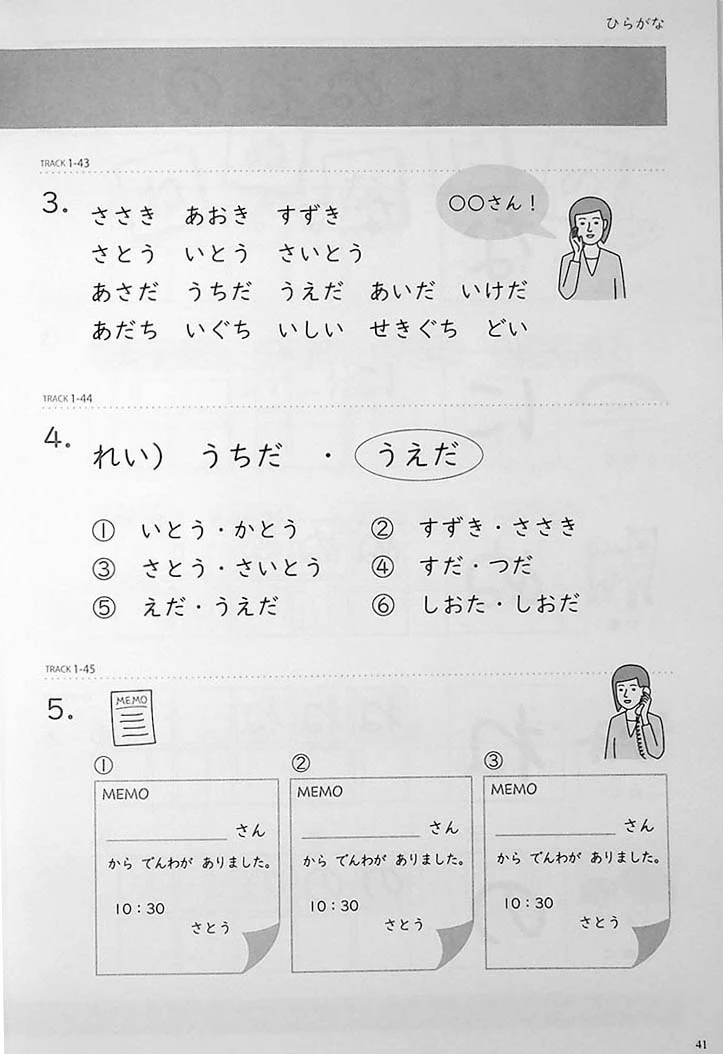 ひらがな
TRACK 1-43
3. ささき あおき すずき
〇〇さん！
さとう いとう さいとう
あさだ うちだ うえだ あいだ いけだ
あだち いぐち いしい せきぐち どい
TRACK 1-44
4. れい） うちだ ・ うえだ
① いとう・かとう ② すずき・ささき
③ さとう・さいとう ④ すだ・つだ
⑤ えだ・うえだ ⑥ しおた・しおだ
TRACK 1-45
5. MEMO
①
MEMO
さん
から でんわが ありました。
10：30
さとう
②
MEMO
さん
から でんわが ありました。
10：30
さとう
③
MEMO
さん
から でんわが ありました。
10：30
さとう
41